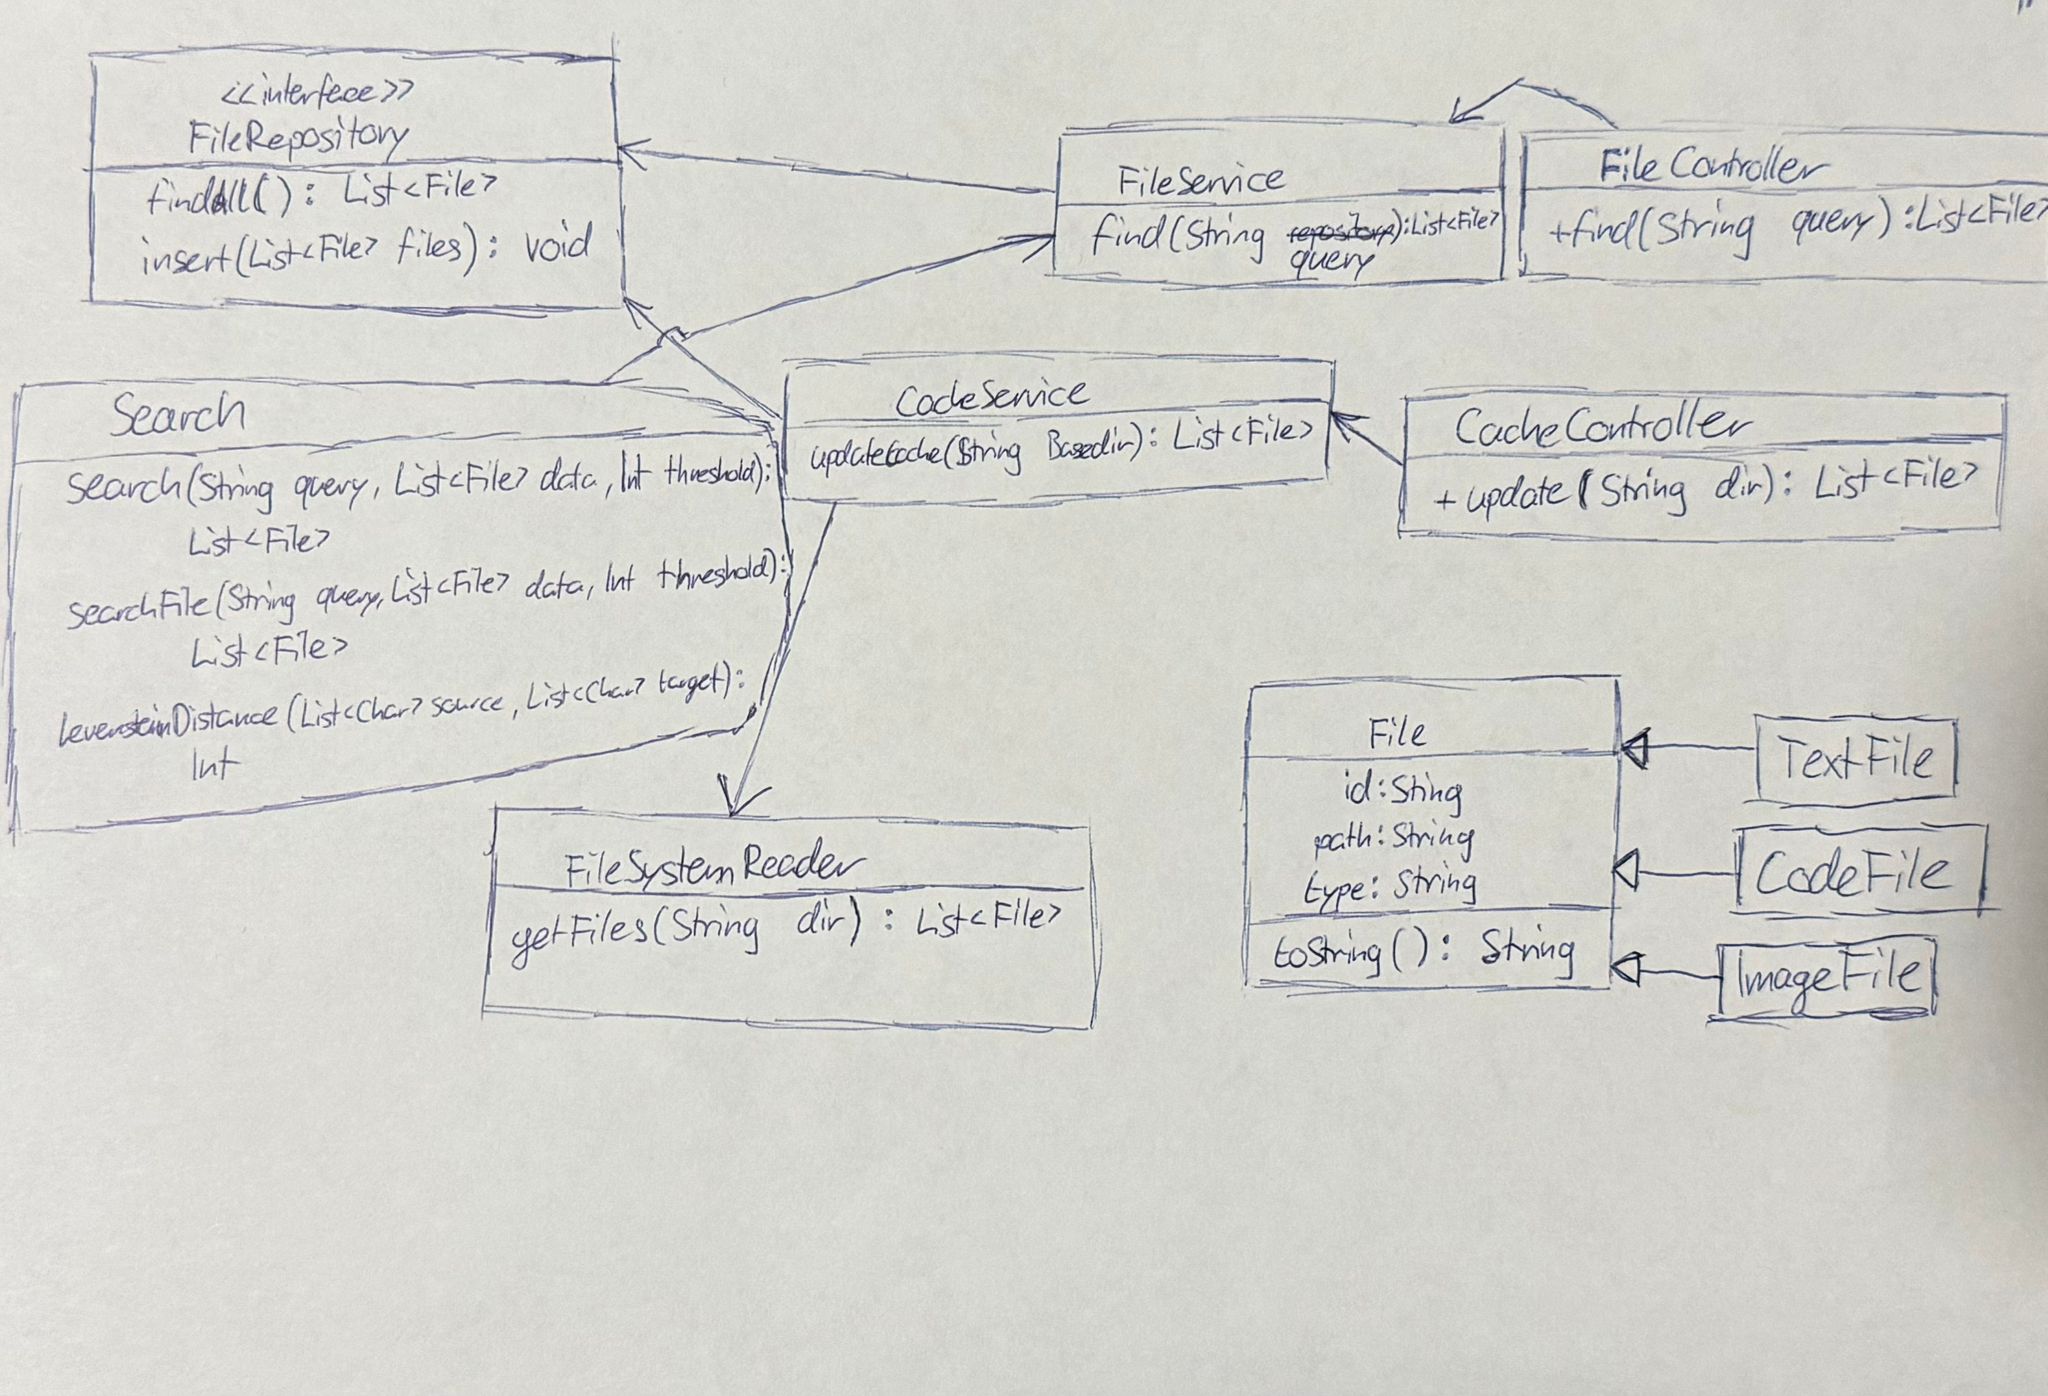 <<interface>>
FileRepository
findAll(): List<File>
insert(List<File> files): void
FileService
find(String repository): List<File>
query
FileController
+find(String query): List<File>
Search
search(String query, List<File> data, Int threshold):
List<File>
searchFile(String query, List<File> data, Int threshold):
List<File>
LevensteinDistance(List<Char> source, List<Char> target):
Int
CacheService
updateCache(String Basedir): List<File>
CacheController
+ update(String dir): List<File>
FileSystemReader
getFiles(String dir): List<File>
File
id: String
path: String
type: String
toString(): String
TextFile
CodeFile
ImageFile